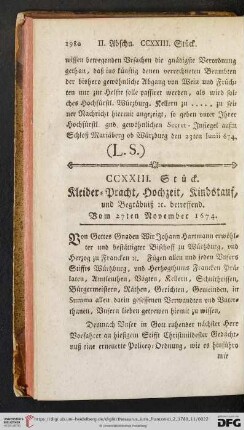 1982 II. Abschn. CCXXIII. Stück.
wissen bewegenden Ursachen die gnädigste Verordnung
gethan, daß ins künftig denen verrechneten Beambten
der bishero gewöhnliche Abgang von Wein und Früch-
ten nur zur Helfte solle passirt werden, als wird sol-
ches Hochfürstl. Würzburg. Kellern zu . . . . . zu sei-
ner Nachricht hiemit angezeigt, so geben unter Ihrer
Hochfürstl. gnd. gewöhnlichen Secret-Insiegel aufm
Schloß Mariäberg ob Würzburg den 23ten Junii 674.
(L. S.)
CCXXIII. Stück.
Kleider-Pracht, Hochzeit, Kindstauf,
und Begräbniß ec. betreffend.
Vom 27ten November 1674.
Von Gottes Gnaden Wir Johann Hartmann erwähl-
ter und bestättigter Bischoff zu Würzburg, und
Herzog zu Francken ec. Fügen allen und jeden Unsers
Stiffts Würzburg, und Herzogthums Francken Präla-
taten, Amtleuthen, Vögten, Kellern, Schultheissen,
Bürgermeistern, Räthen, Gerichten, Gemeinden, in
Summa allen darin gesessenen Verwandten und Unter-
thanen, Unsern lieben getreuen hiemit zu wissen.
Demnach Unser in Gott ruhender nächster Herr
Vorfahrer an hiesigem Stifft Christmildester Gedächt-
nuß eine erneuerte Policey-Ordnung, wie es hinführo
mit
UNIVERSITÄTS-
BIBLIOTHEK
HEIDELBERG
DFG